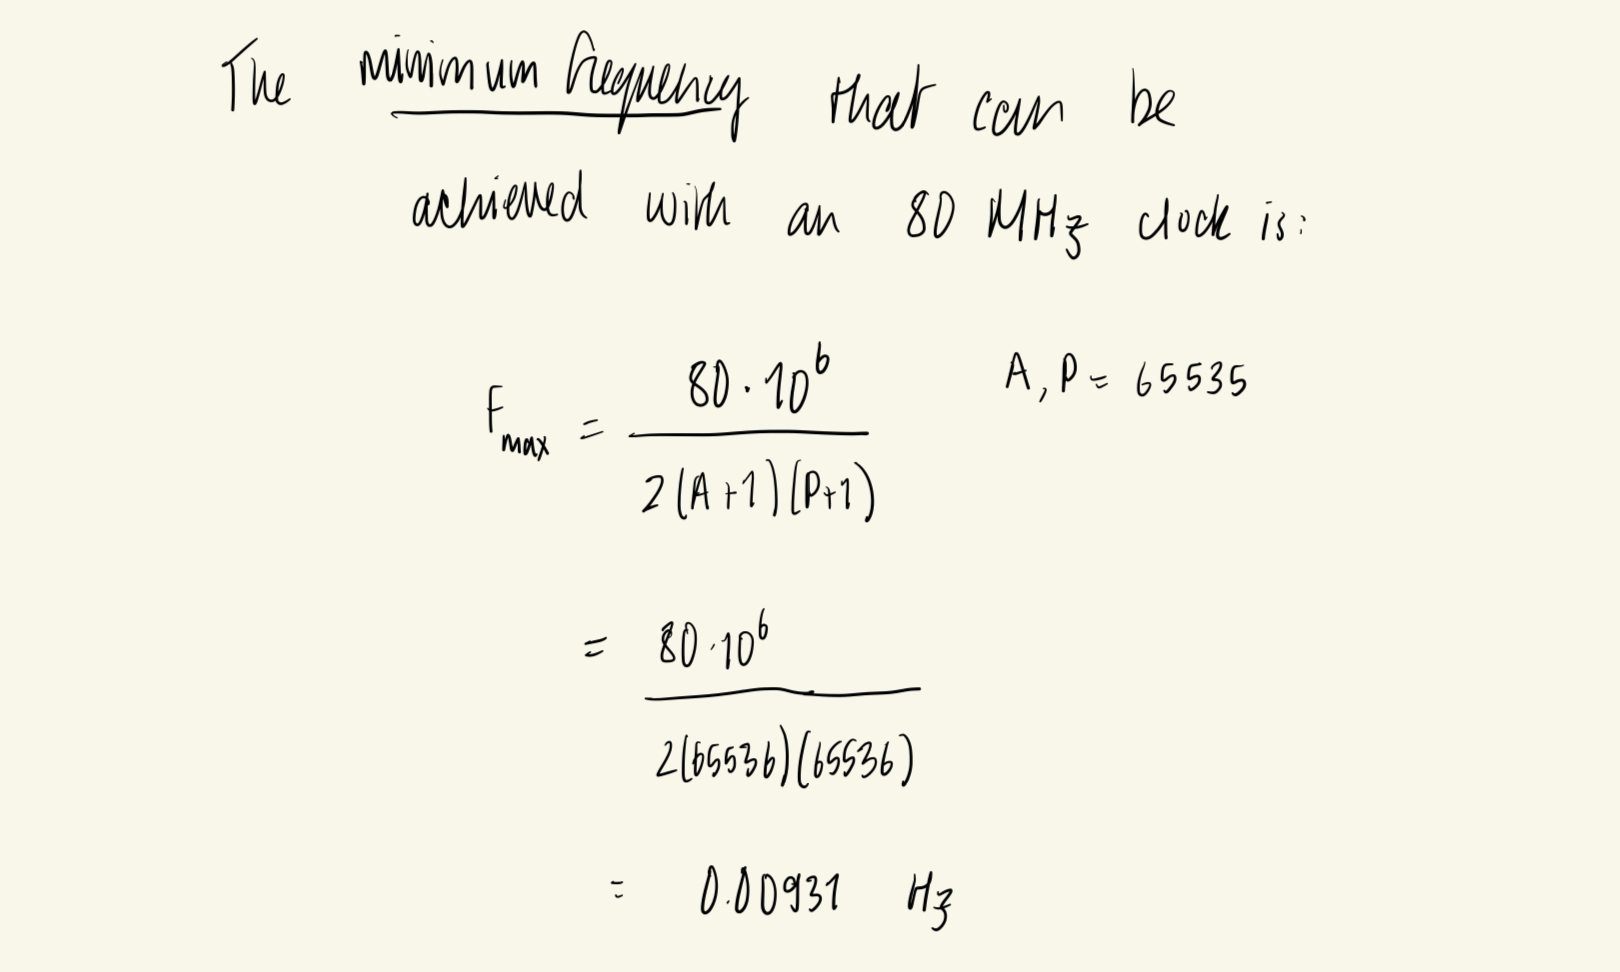 The minimum frequency that can be
achieved with an 80 MHz clock is:
F_max = 80 · 10^6 / 2(A+1)(P+1)    A, P = 65535
= 80 · 10^6 / 2(65536)(65536)
= 0.00931 Hz